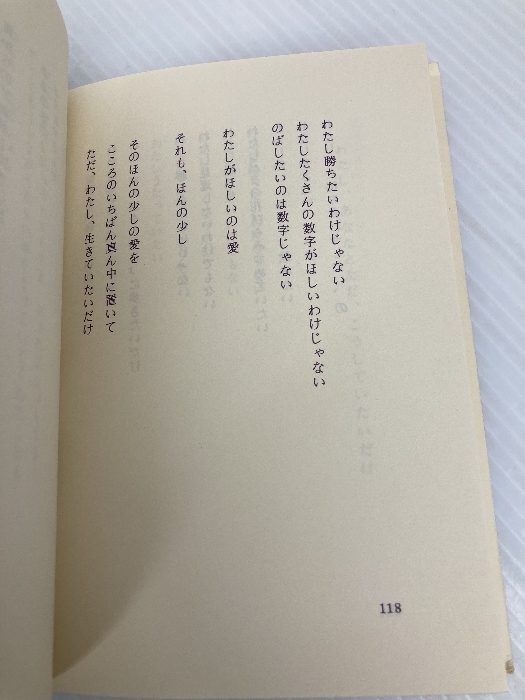 わたし勝ちたいわけじゃない
わたしたくさんの数字がほしいわけじゃない
のばしたいのは数字じゃない
わたしがほしいのは愛
それも、ほんの少し
そのほんの少しの愛を
こころのいちばん真ん中に置いて
ただ、わたし、生きていたいだけ
118